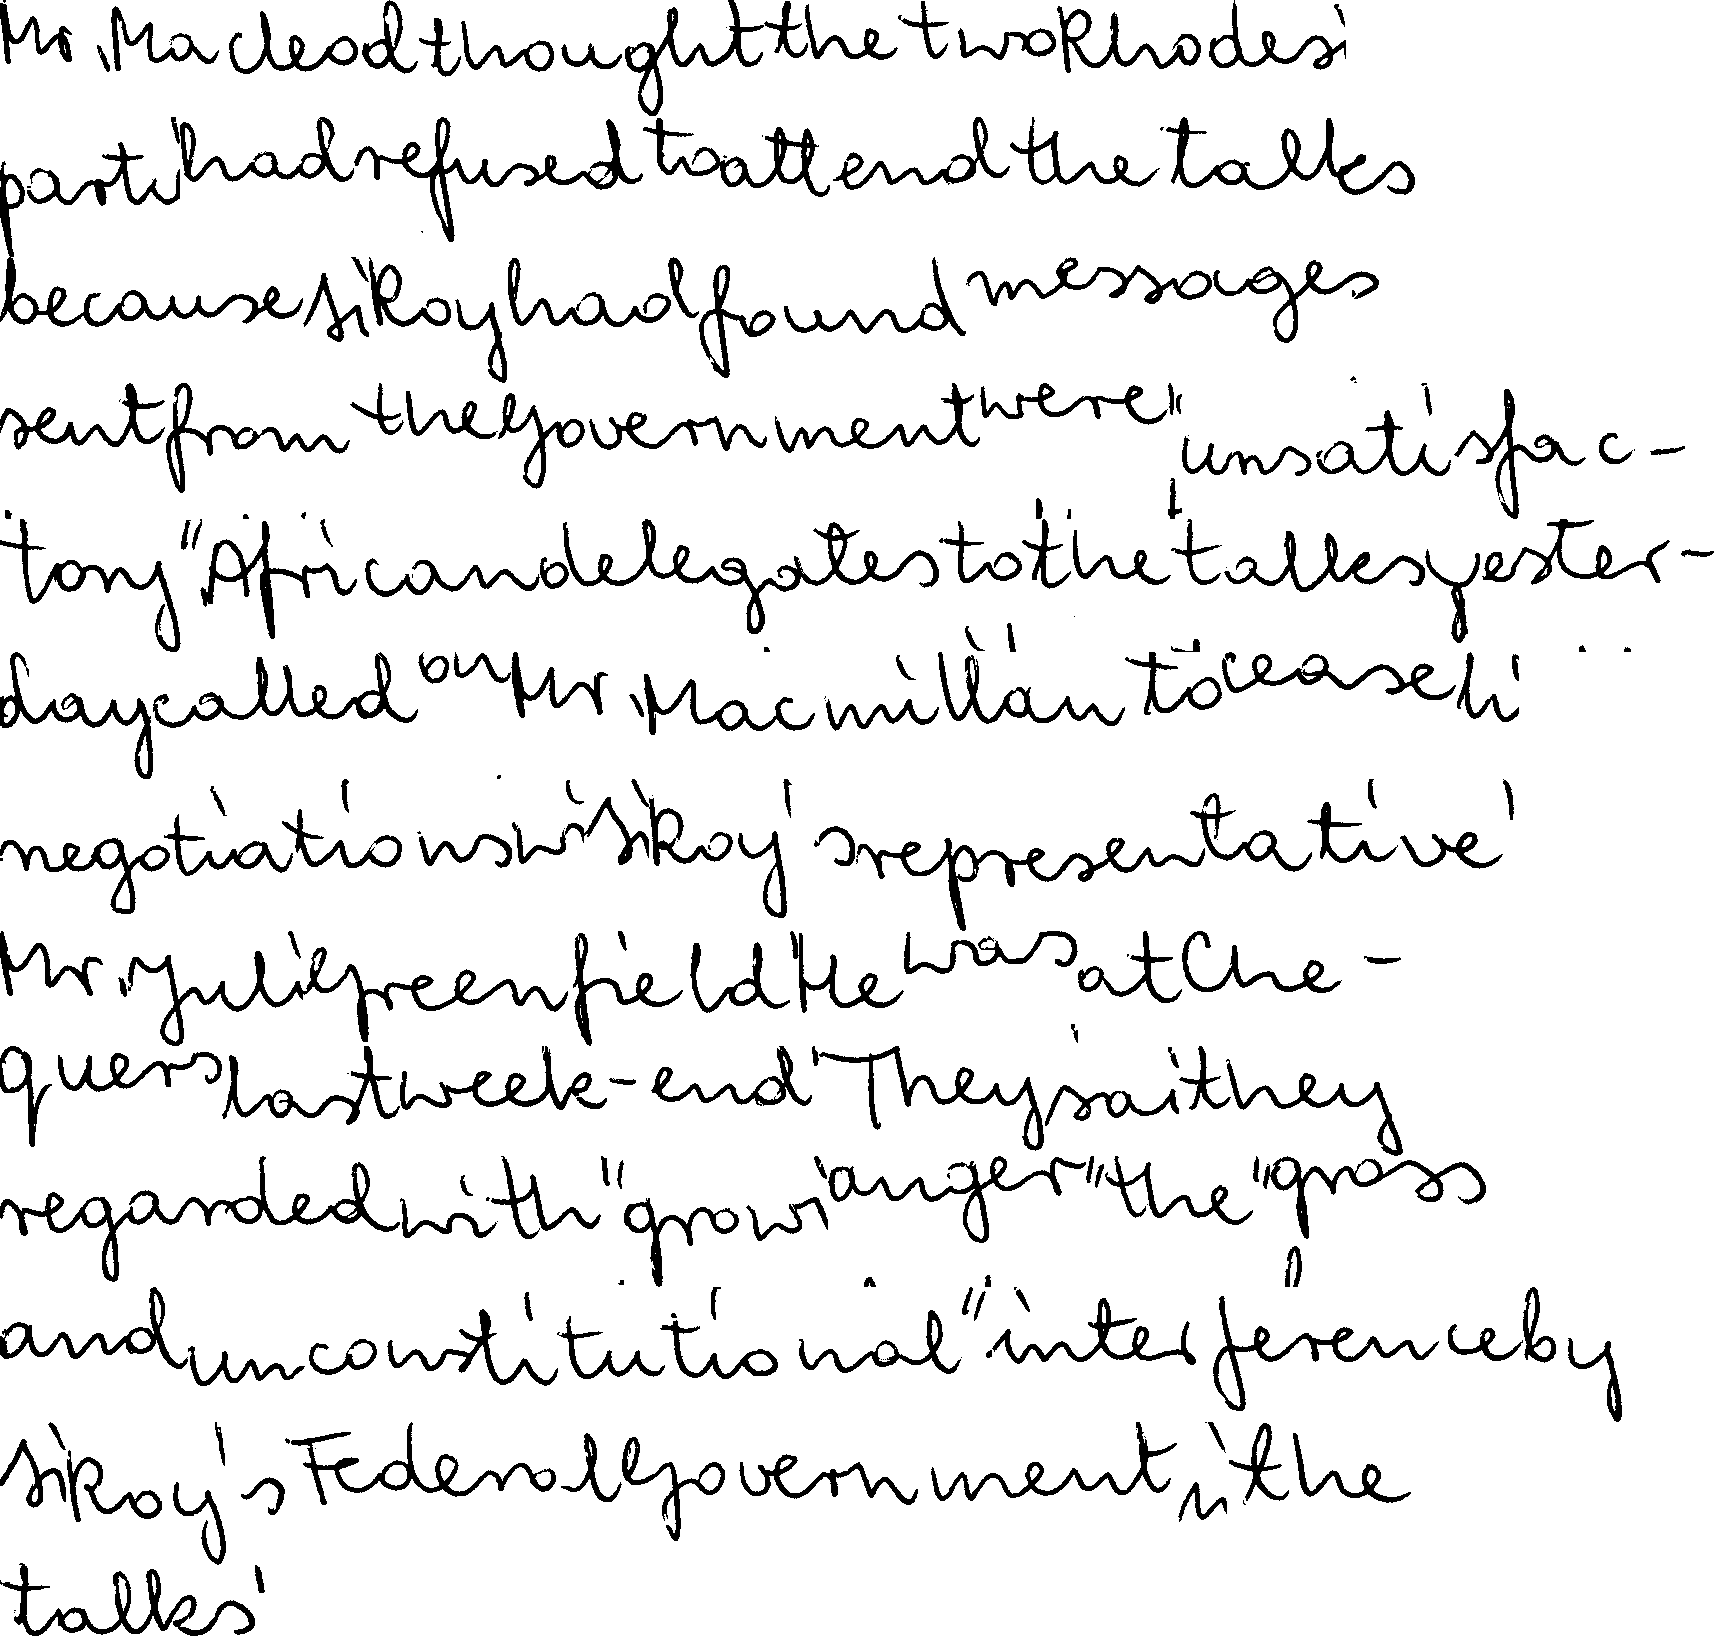 Mr. Macleod thought the two Rhodesi
parti had refused to attend the talks
because Si Roy had found messages
sent from the Government were "unsatisfac-
tory" African delegates to the talks yester-
day called on Mr. Macmillan to cease hi
negotiations wi Si Roy's representative
Mr. Juli Greenfield He was at Che-
quers last week-end They sai they
regarded with "growi anger" the "gross
and unconstitutional" interference by
Si Roy's Federal Government in the
talks